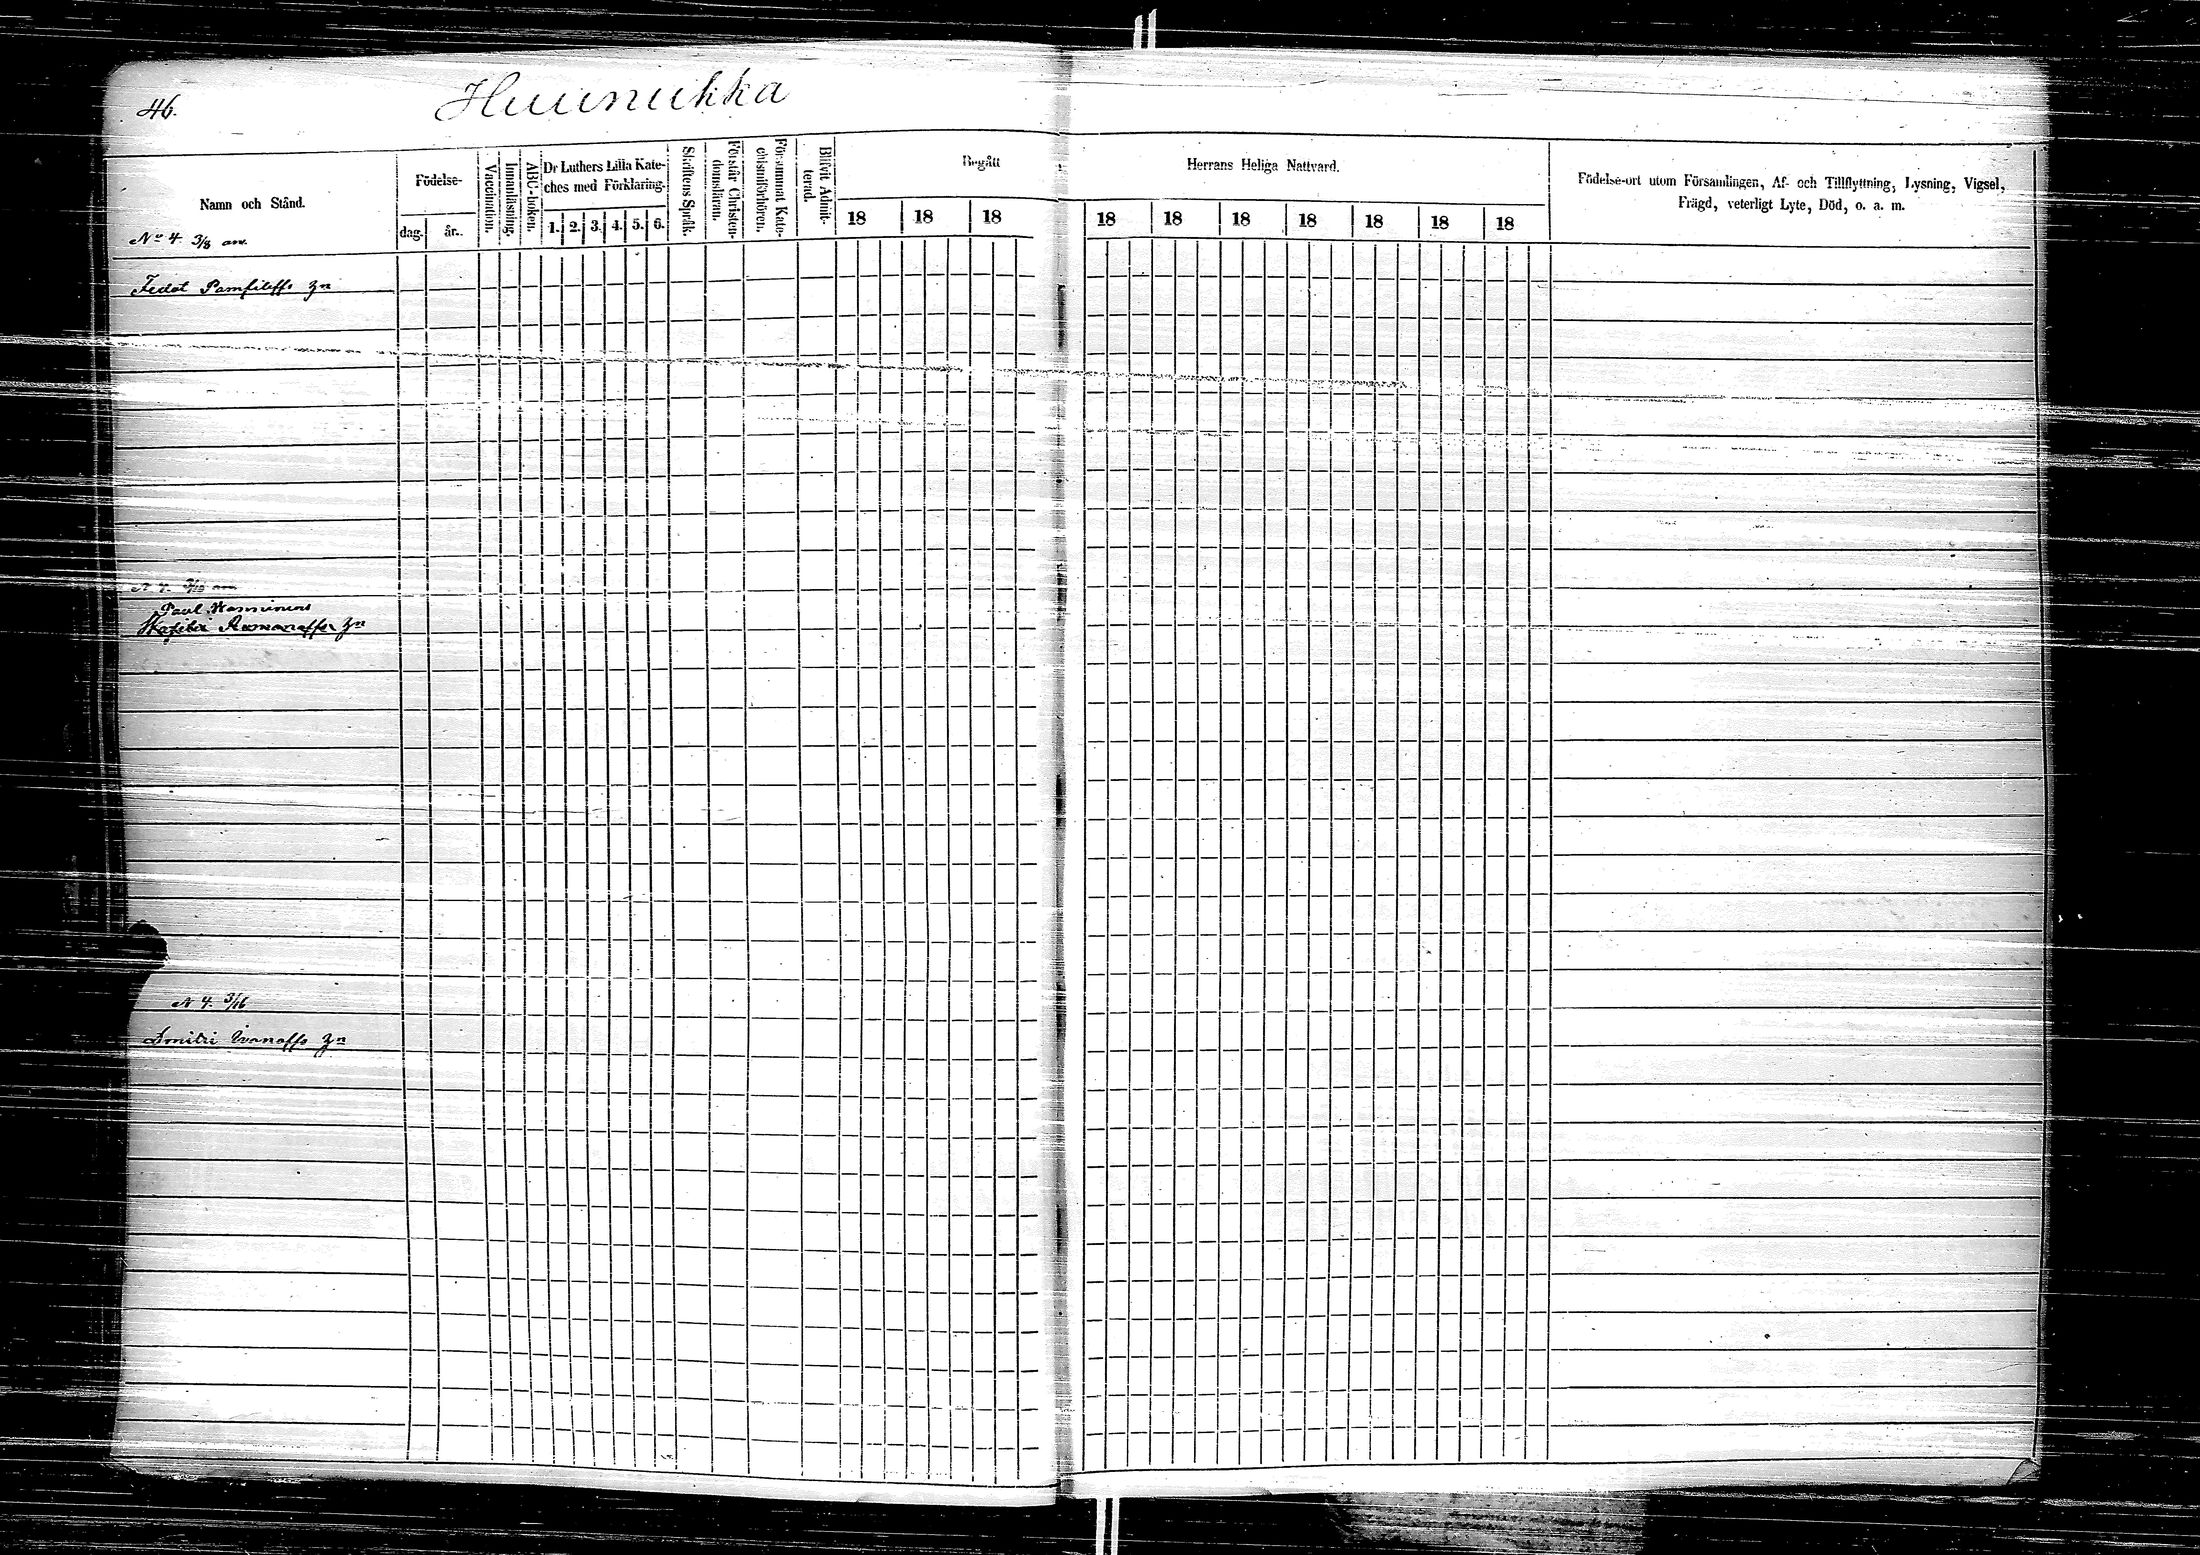 46.
Huunukka
Namn och Stånd.
Födelse-
dag.
år.
Vaccination.
Innanläsning.
ABC-boken.
Dr Luthers Lilla Kate-
ches med Förklaring.
1. 2. 3. 4. 5. 6.
Skriftens Språk.
Förstår Christen-
domsläran.
Försummat Kate-
chismiförhören.
Blifvit Admit-
terad.
Begått
Herrans Heliga Nattvard.
18 18 18 18 18 18 18 18 18 18
Födelse-ort utom Församlingen, Af- och Tillflyttning, Lysning, Vigsel,
Frägd, veterligt Lyte, Död, o. a. m.
No 4 3/8 an.
Fedot Pamfileffs zn
N 4.
Paul
Romanoffs zn
N 4. 3/16
Dmitri Ivanoffs zn